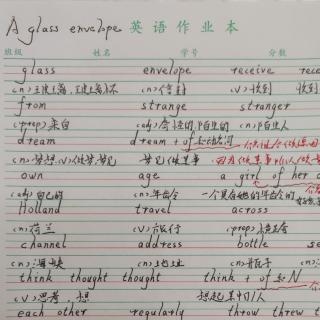 A glass envelope 英语作业本
班级 姓名 学号 分数
glass envelope receive rece
(n)玻璃,玻璃杯 (n)信封 (v)收到 收到
from strange stranger
(prep)来自 (adj)奇怪的,陌生的 (n)陌生人
dream dream + of
(n)梦想(v)做梦,梦见 梦见/做某事
own age a girl of her o
(adj)自己的 (n)年龄 一个具有她的年龄的
Holland travel across
(n)荷兰 (v)旅行 (prep)
channel address bottle se
(n)海峡 (n)地址 (n)瓶子
think thought thought think + of sb N
(v)思考,想 想起某物/人
each other regularly throw threw t